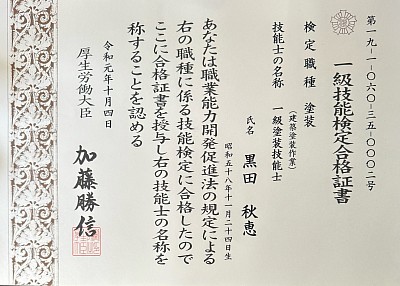 第一九-1-〇六〇-三五-〇〇〇二号
一級技能検定合格証書
検定職種 塗装
(建築塗装作業)
技能士の名称 一級塗装技能士
氏名 黒田 秋恵
昭和五十八年十一月二十四日生
あなたは職業能力開発促進法の規定による
右の職種に係る技能検定に合格したので
ここに合格証書を授与し右の技能士の名称を
称することを認める
令和元年十月四日
厚生労働大臣 加藤勝信